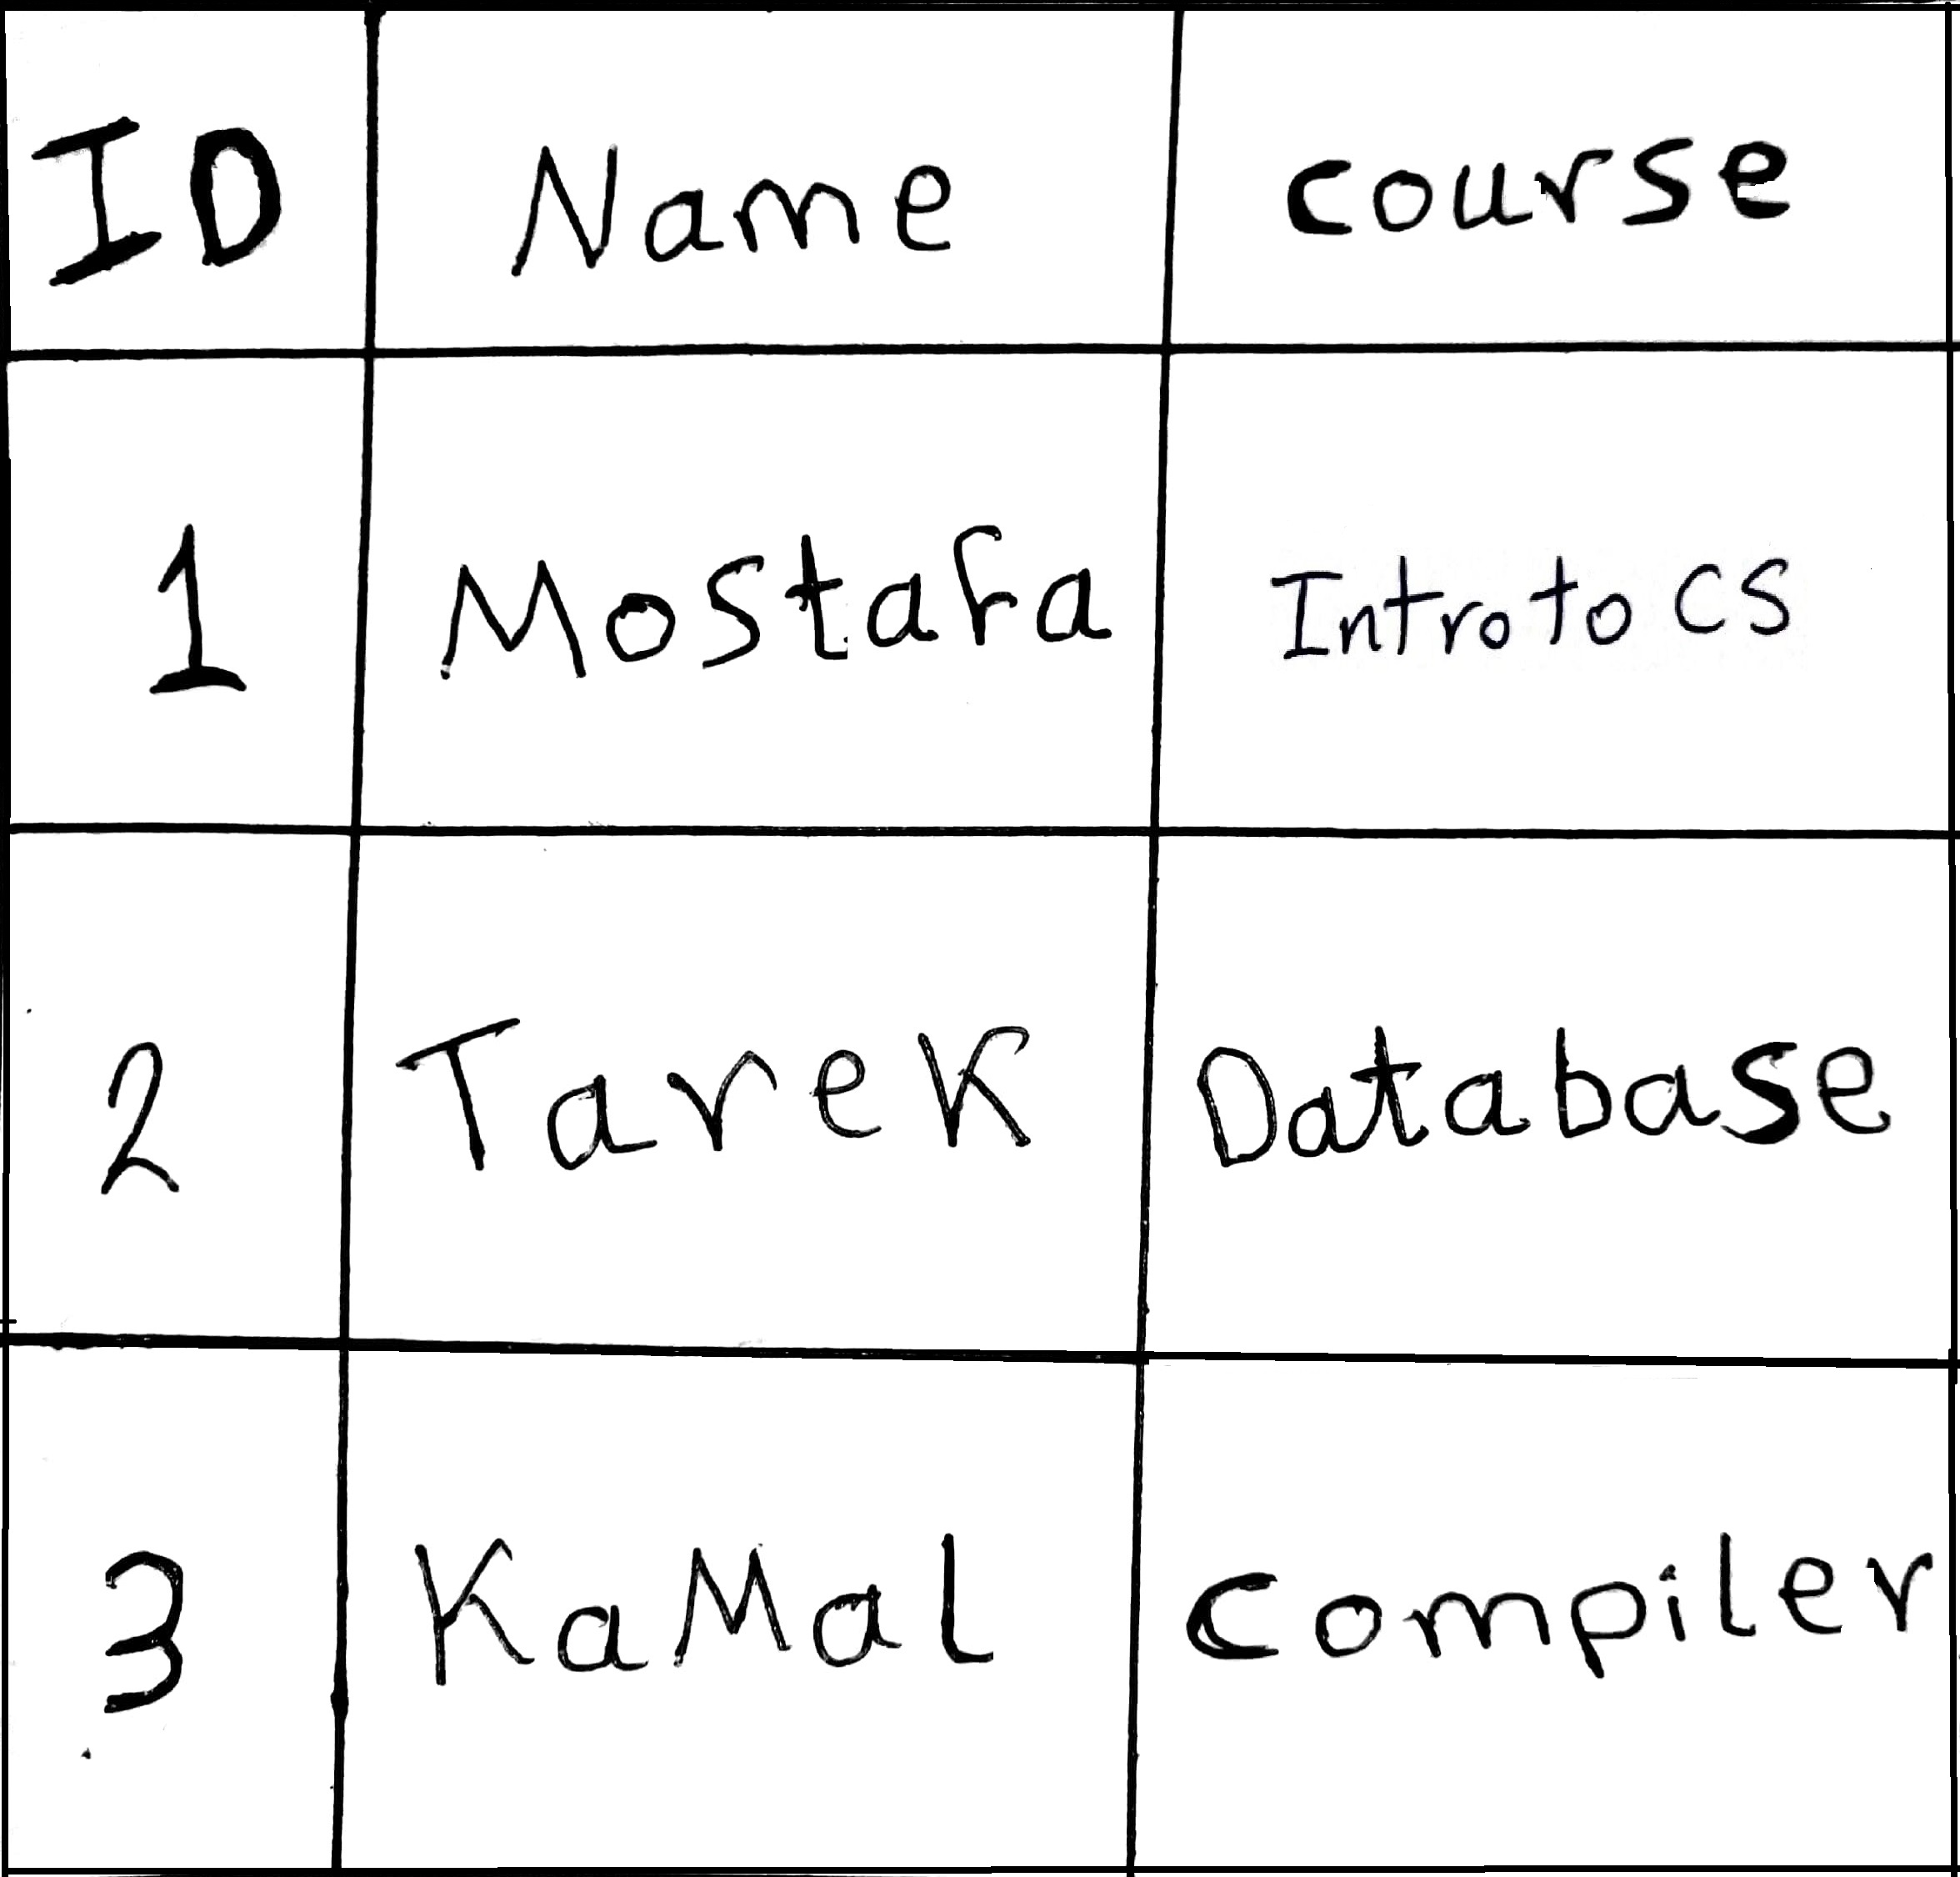 ID Name course
1 Mostafa Intro to CS
2 Tarek Database
3 KaMal compiler